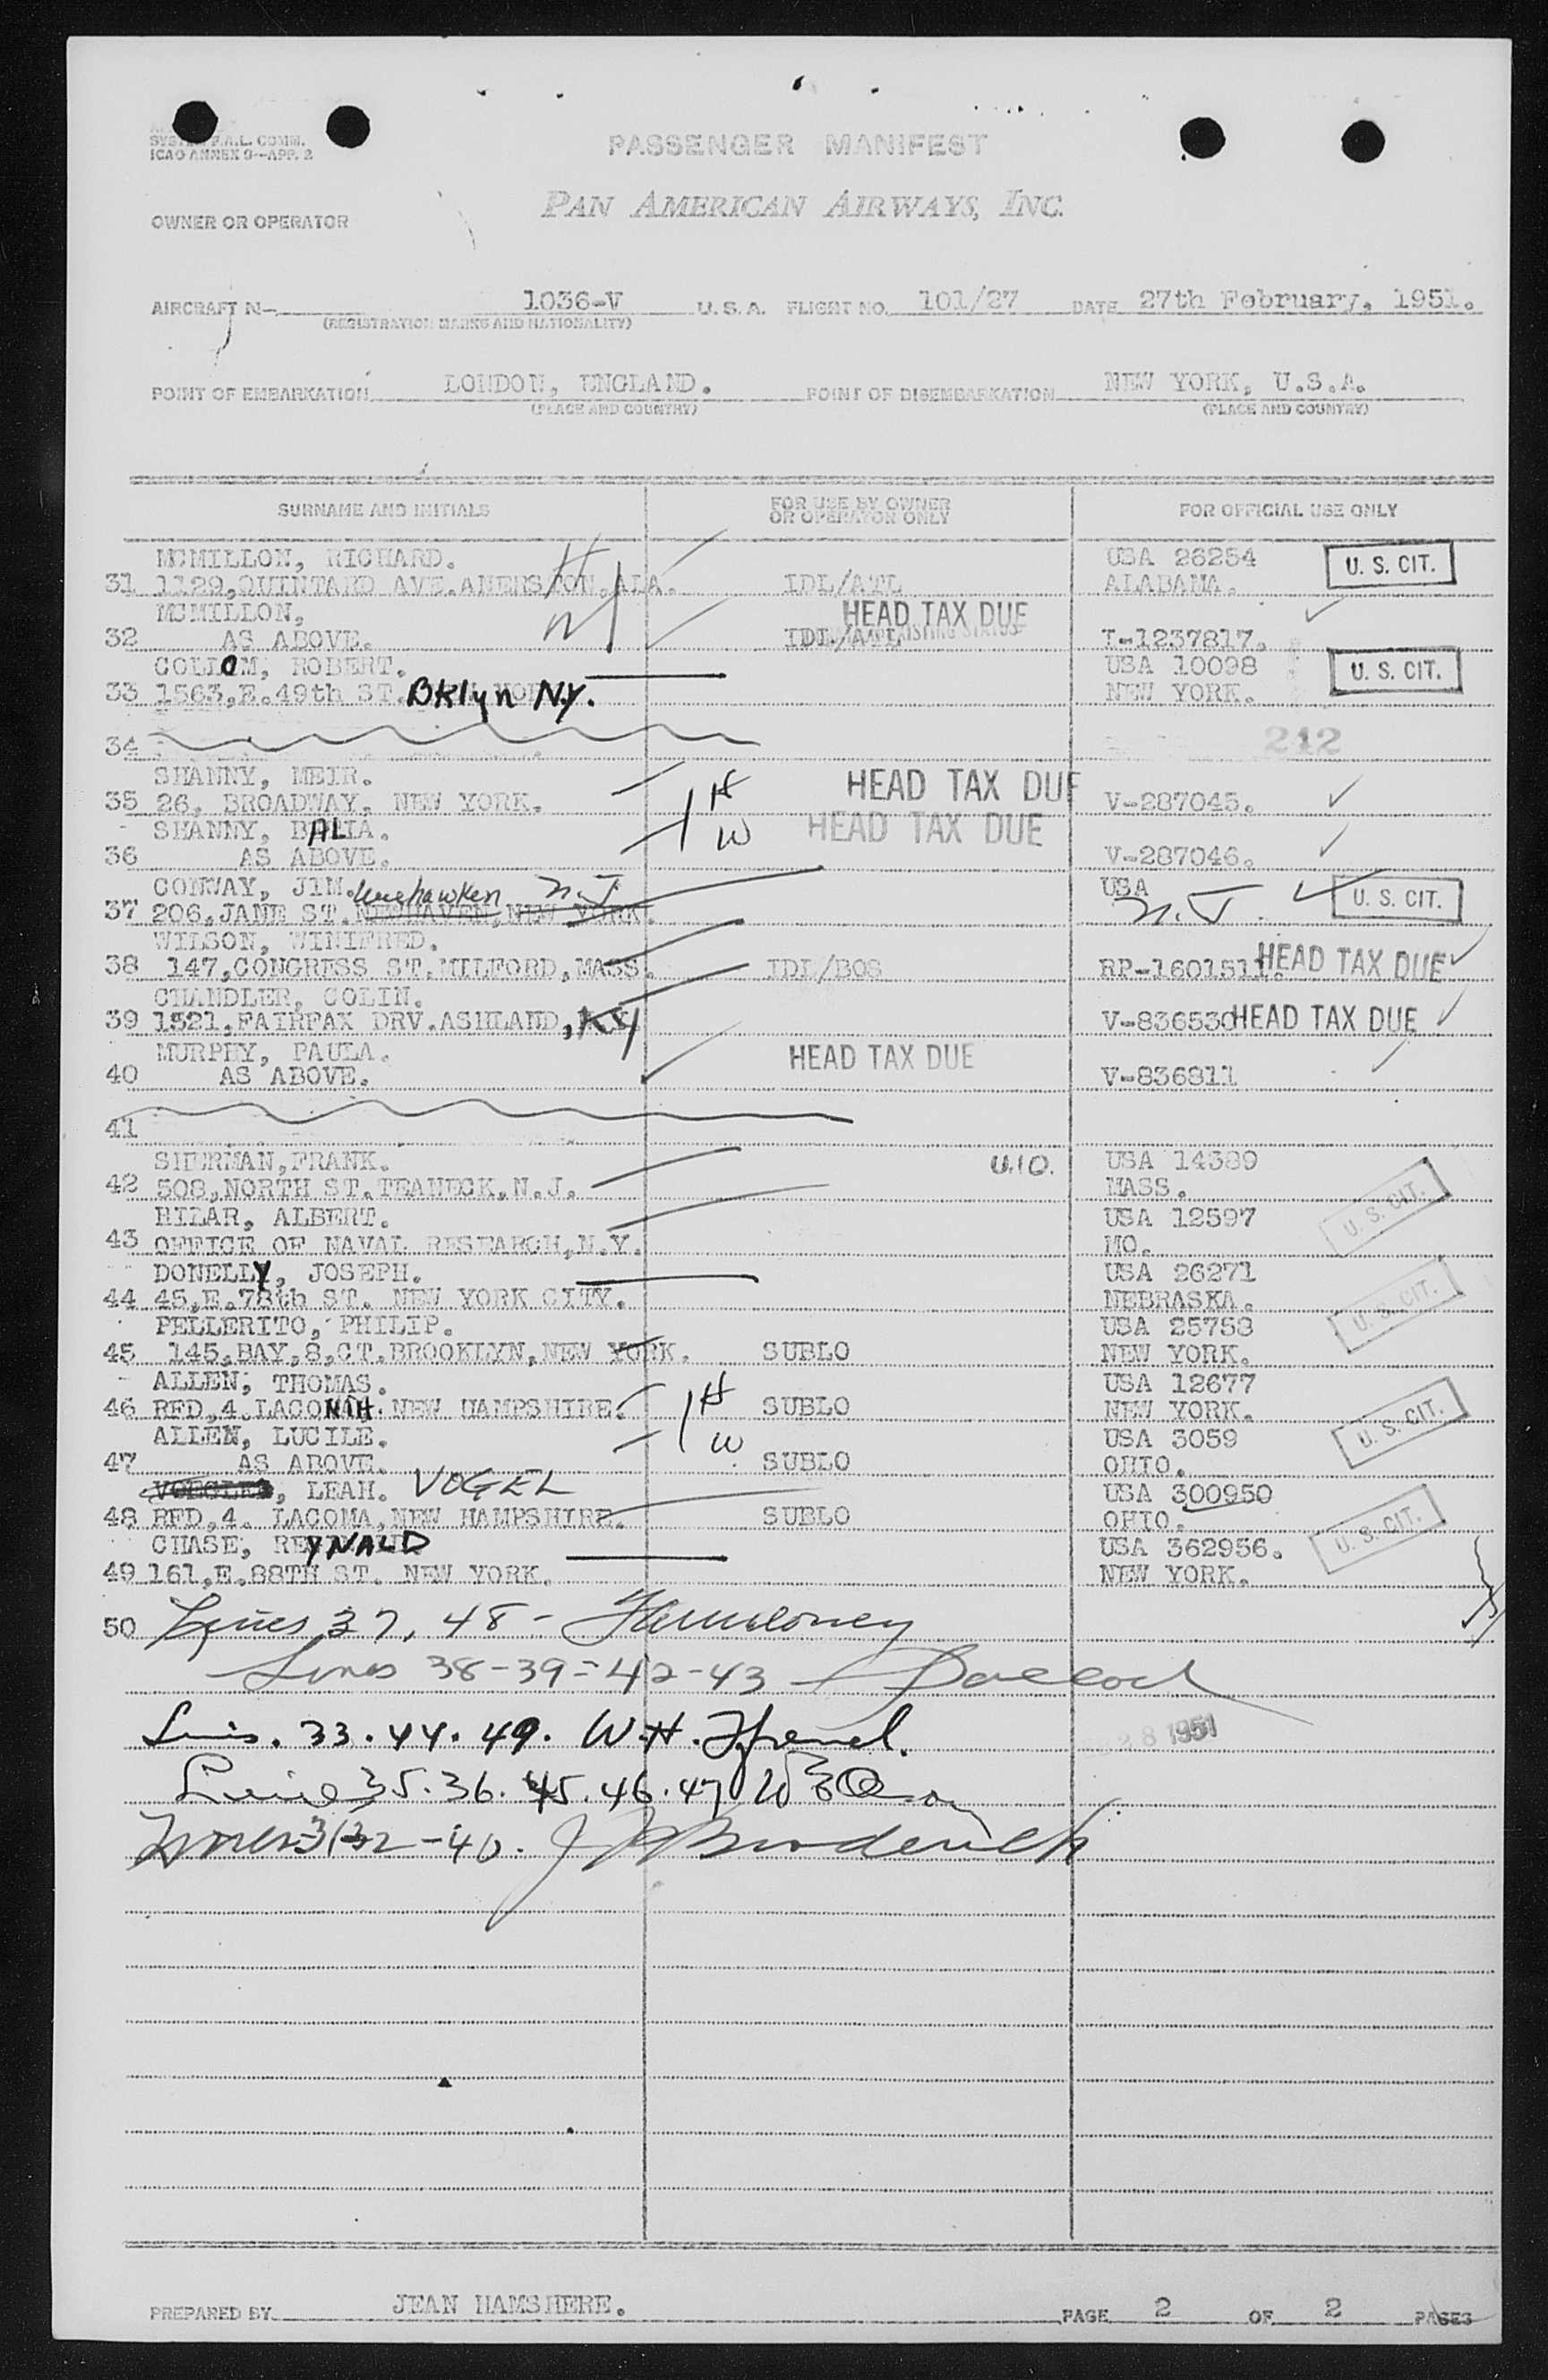 SYSTEM F.A.L. COMM.
ICAO ANNEX 9—APP. 2
PASSENGER MANIFEST
PAN AMERICAN AIRWAYS, INC.
OWNER OR OPERATOR
AIRCRAFT N- 1036-V U.S.A. FLIGHT NO. 101/27 DATE 27th February, 1951.
(REGISTRATION MARKS AND NATIONALITY)
POINT OF EMBARKATION LONDON, ENGLAND. POINT OF DISEMBARKATION NEW YORK, U.S.A.
(PLACE AND COUNTRY) (PLACE AND COUNTRY)
SURNAME AND INITIALS FOR USE BY OWNER OR OPERATOR ONLY FOR OFFICIAL USE ONLY
MCMILLON, RICHARD. H USA 26254 U. S. CIT.
31 1129,QUINTARD AVE. ALA. IDL/ATL ALABAMA.
MCMILLON, HEAD TAX DUE
32 AS ABOVE. W IDL/ATL I-1237817.
COLLOM, ROBERT. USA 10098 U. S. CIT.
33 1563,E.49th ST. BKlyn N.Y. NEW YORK.
34 242
SHANNY, MEIR. H HEAD TAX DUE
35 26, BROADWAY, NEW YORK. V-287045.
SHANNY, BALIA. W HEAD TAX DUE
36 AS ABOVE. V-287046.
CONWAY, JIM. Weehawken N.J. USA N.J. U. S. CIT.
37 206,JANE ST. NEWHAVEN, NEW YORK.
WILSON, WINIFRED.
38 147,CONGRESS ST.MILFORD,MASS. IDL/BOS RP-1601511. HEAD TAX DUE
CHANDLER, COLIN.
39 1521,FAIRFAX DRV.ASHLAND, KY V-836530 HEAD TAX DUE
MURPHY, PAULA. HEAD TAX DUE
40 AS ABOVE. V-836811
41
SHERMAN,FRANK. U.I.O. USA 14389
42 508,NORTH ST.TEANECK,N.J. MASS. U. S. CIT.
HILAR, ALBERT. USA 12597
43 OFFICE OF NAVAL RESEARCH,N.Y. MO.
DONELLY, JOSEPH. USA 26271
44 45,E.78th ST. NEW YORK CITY. NEBRASKA. U. S. CIT.
PELLERITO, PHILIP. USA 25758
45 145,BAY,8,CT.BROOKLYN,NEW YORK. SUBLO NEW YORK.
ALLEN, THOMAS. H USA 12677
46 RFD,4.LACONIA. NEW HAMPSHIRE. SUBLO NEW YORK. U. S. CIT.
ALLEN, LUCILE. W USA 3059
47 AS ABOVE. SUBLO OHIO.
, LEAH. VOGEL USA 300950
48 RFD,4. LACOMA,NEW HAMPSHIRE. SUBLO OHIO. U. S. CIT.
CHASE, REYNALD USA 362956.
49 161,E.88TH ST. NEW YORK. NEW YORK.
50 Lines 37, 48 -
Lines 38-39-42-43
Lines. 33.44.49. W.H.
28 1951
Line 35.36.45.46.47
Lines 31-32-40. Broderick
PREPARED BY JEAN HAMSHERE. PAGE 2 OF 2 PAGES